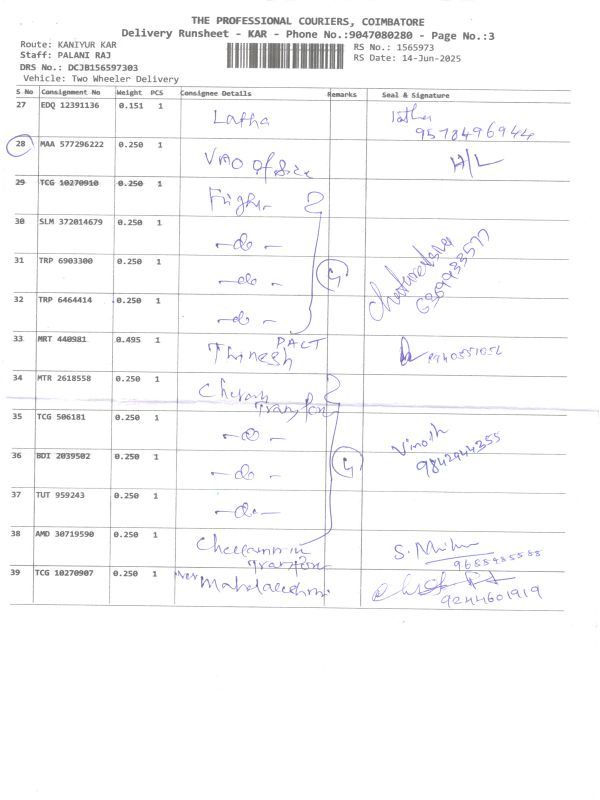 THE PROFESSIONAL COURIERS, COIMBATORE
Delivery Runsheet - KAR - Phone No.:9047080280 - Page No.:3
Route: KANIYUR KAR
RS No.: 1565973
Staff: PALANI RAJ
RS Date: 14-Jun-2025
DRS No.: DCJB156597303
Vehicle: Two Wheeler Delivery
S No Consignment No Weight PCS Consignee Details Remarks Seal & Signature
27 EDQ 12391136 0.151 1 Latha
9578496944
28 MAA 577296222 0.250 1 VAO Office H/L
29 TCG 10270910 0.250 1
30 SLM 372014679 0.250 1 -do-
31 TRP 6903300 0.250 1 -do-
6369933577
32 TRP 6464414 0.250 1 -do-
33 MRT 440981 0.495 1 PACT
Thinesh
34 MTR 2618558 0.250 1
35 TCG 506181 0.250 1 -do- Vinoth
9842944355
36 BDI 2039502 0.250 1 -do-
37 TUT 959243 0.250 1 -do-
38 AMD 30719590 0.250 1
39 TCG 10270907 0.250 1
9244601919